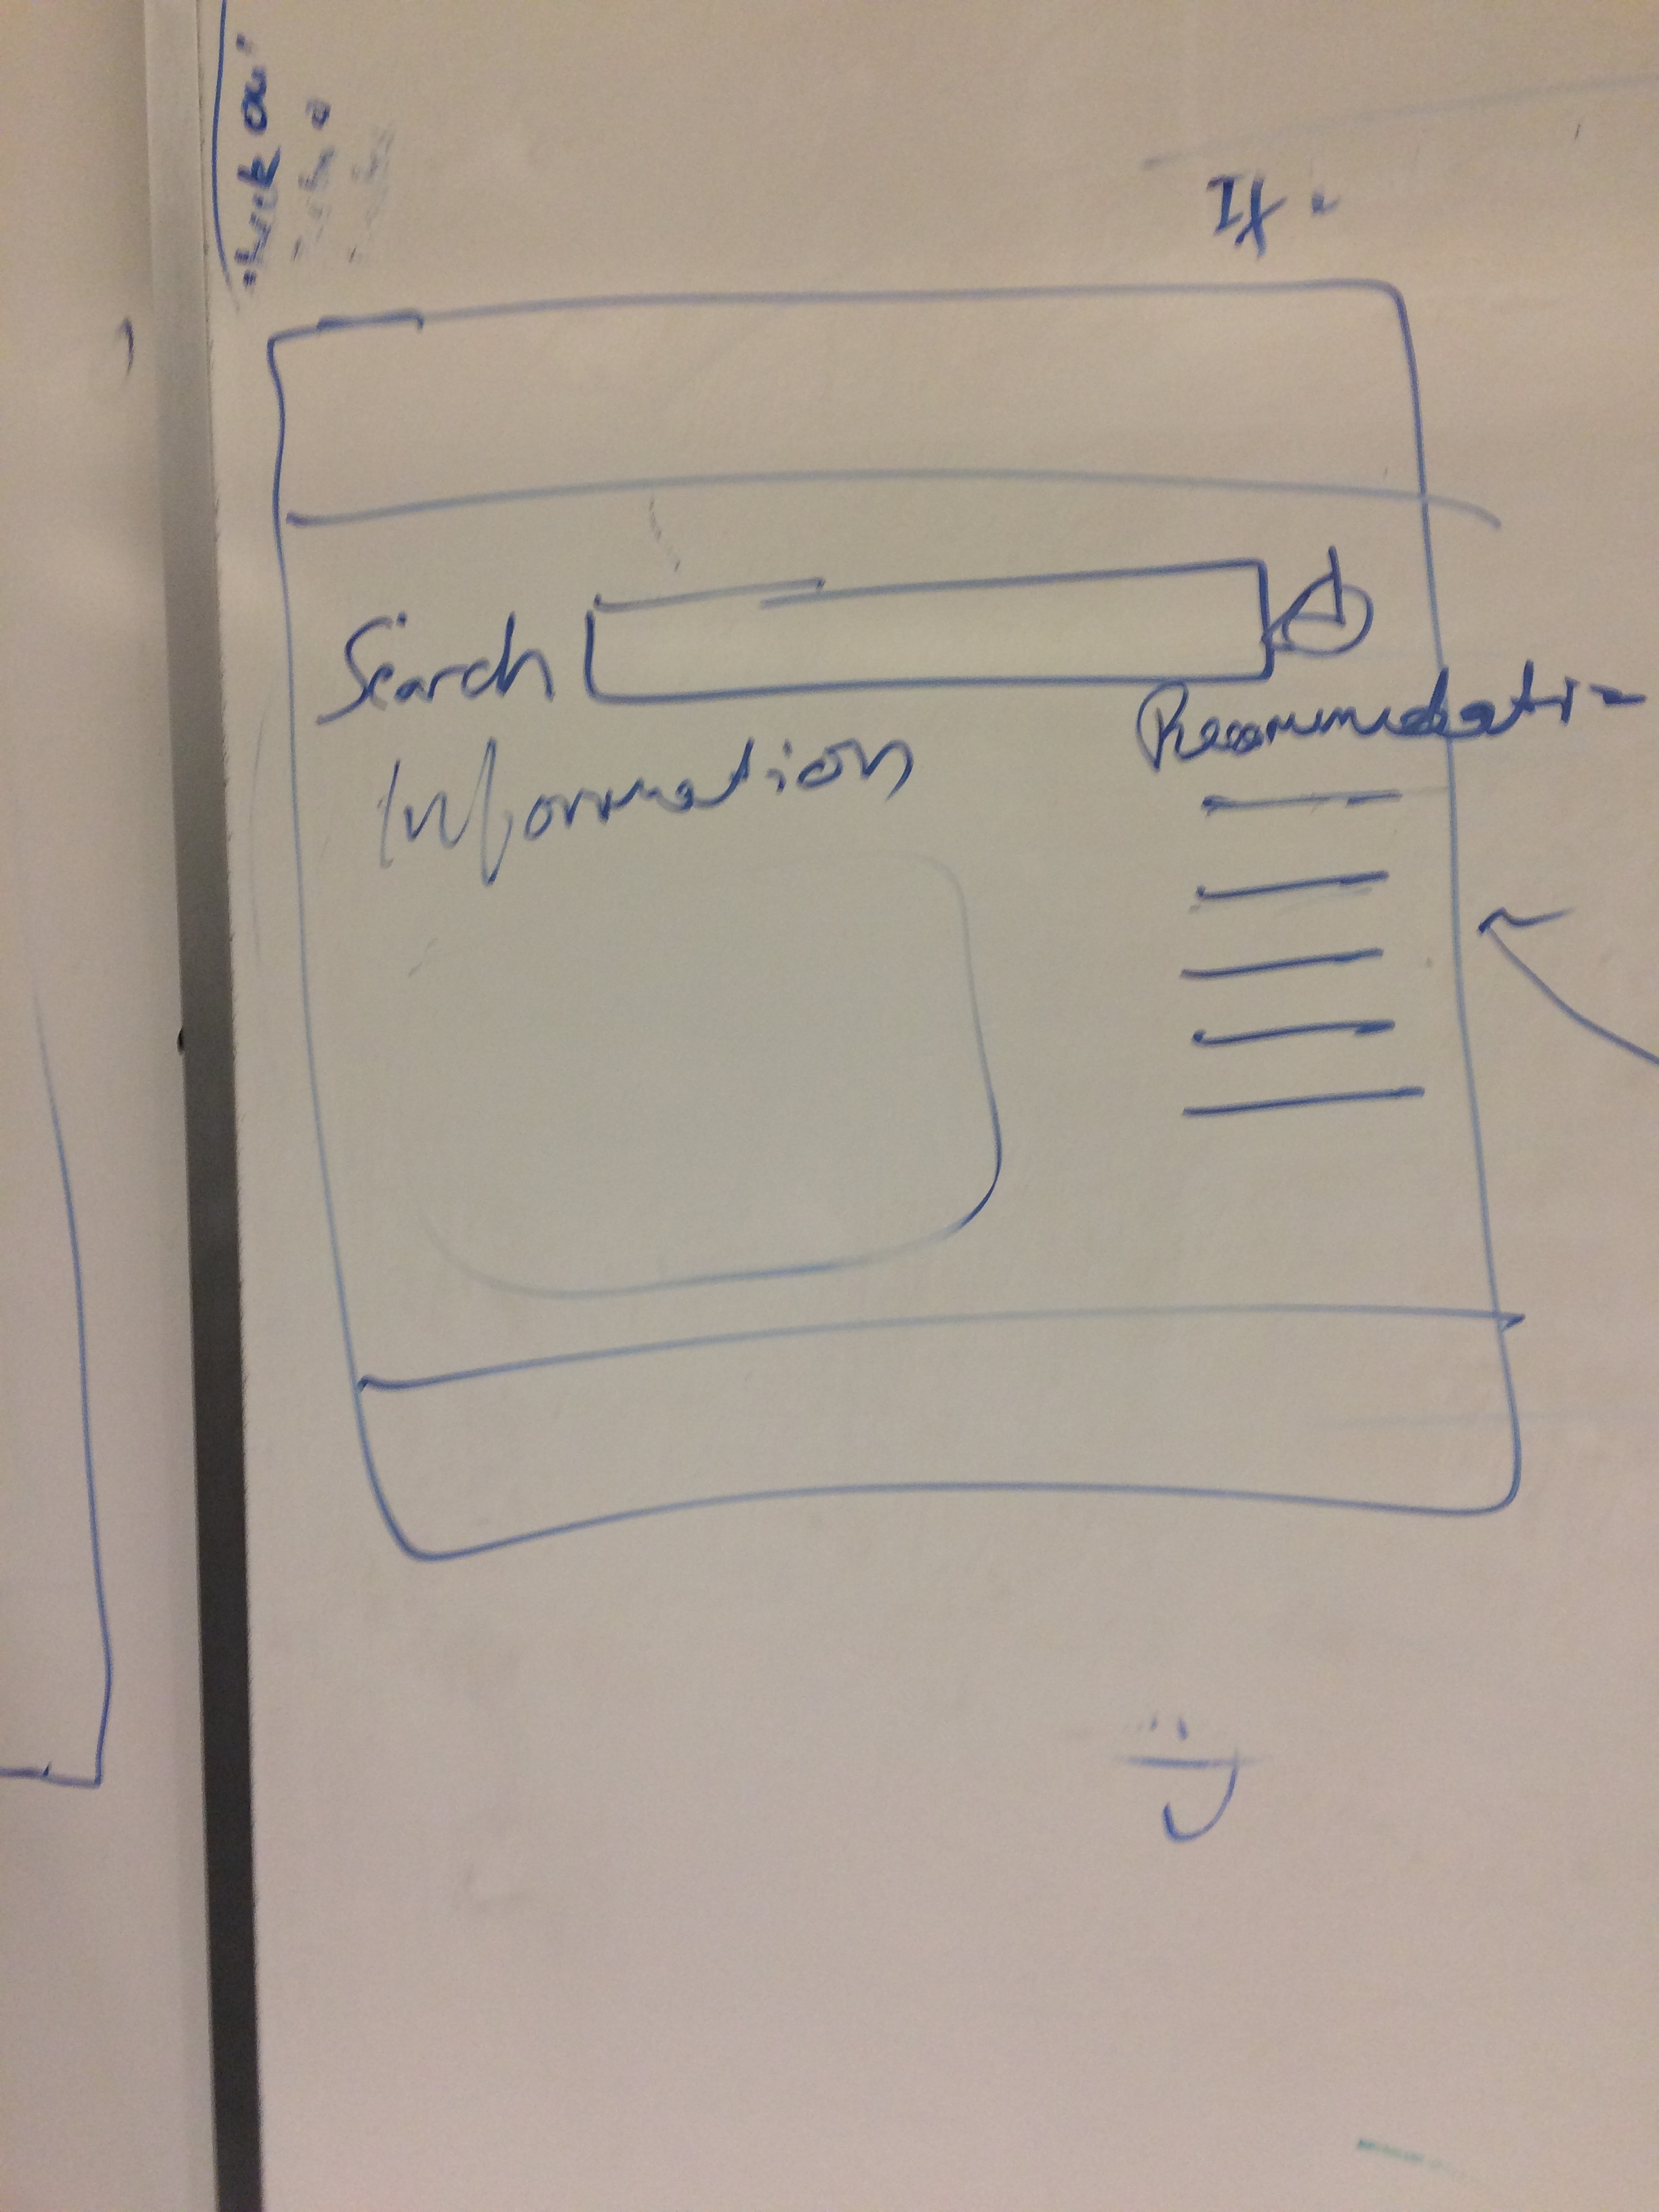 If
Search
Information
Recommendation